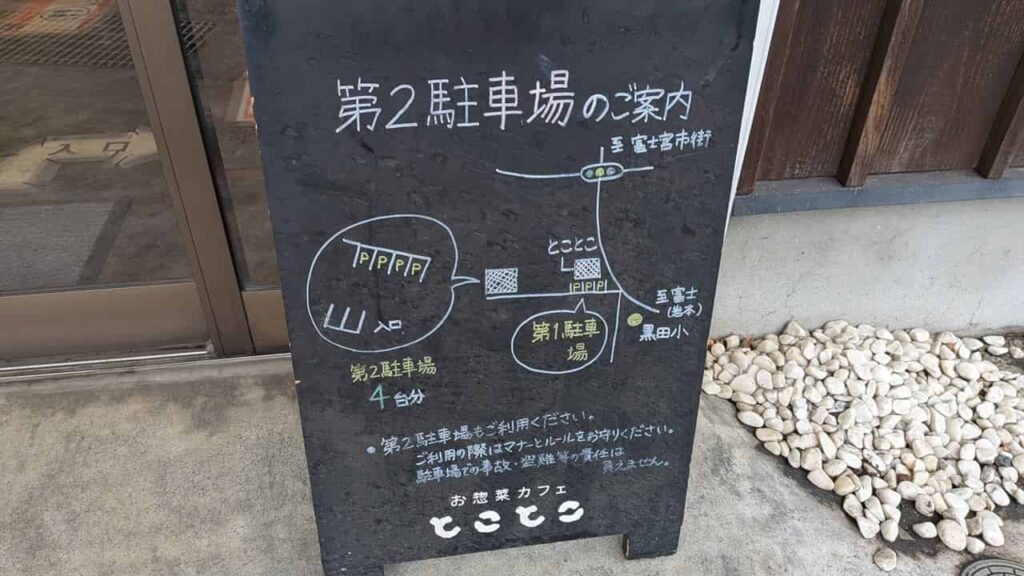 第2駐車場のご案内
至富士宮市街
とことこ
P P P P
P P P
入口
至富士
(岩本)
第1駐車
場
黒田小
第2駐車場
4台分
• 第2駐車場もご利用ください。
ご利用の際はマナーとルールをお守りください。
駐車場での事故・盗難等の責任は
負えません。
お惣菜カフェ
とことこ